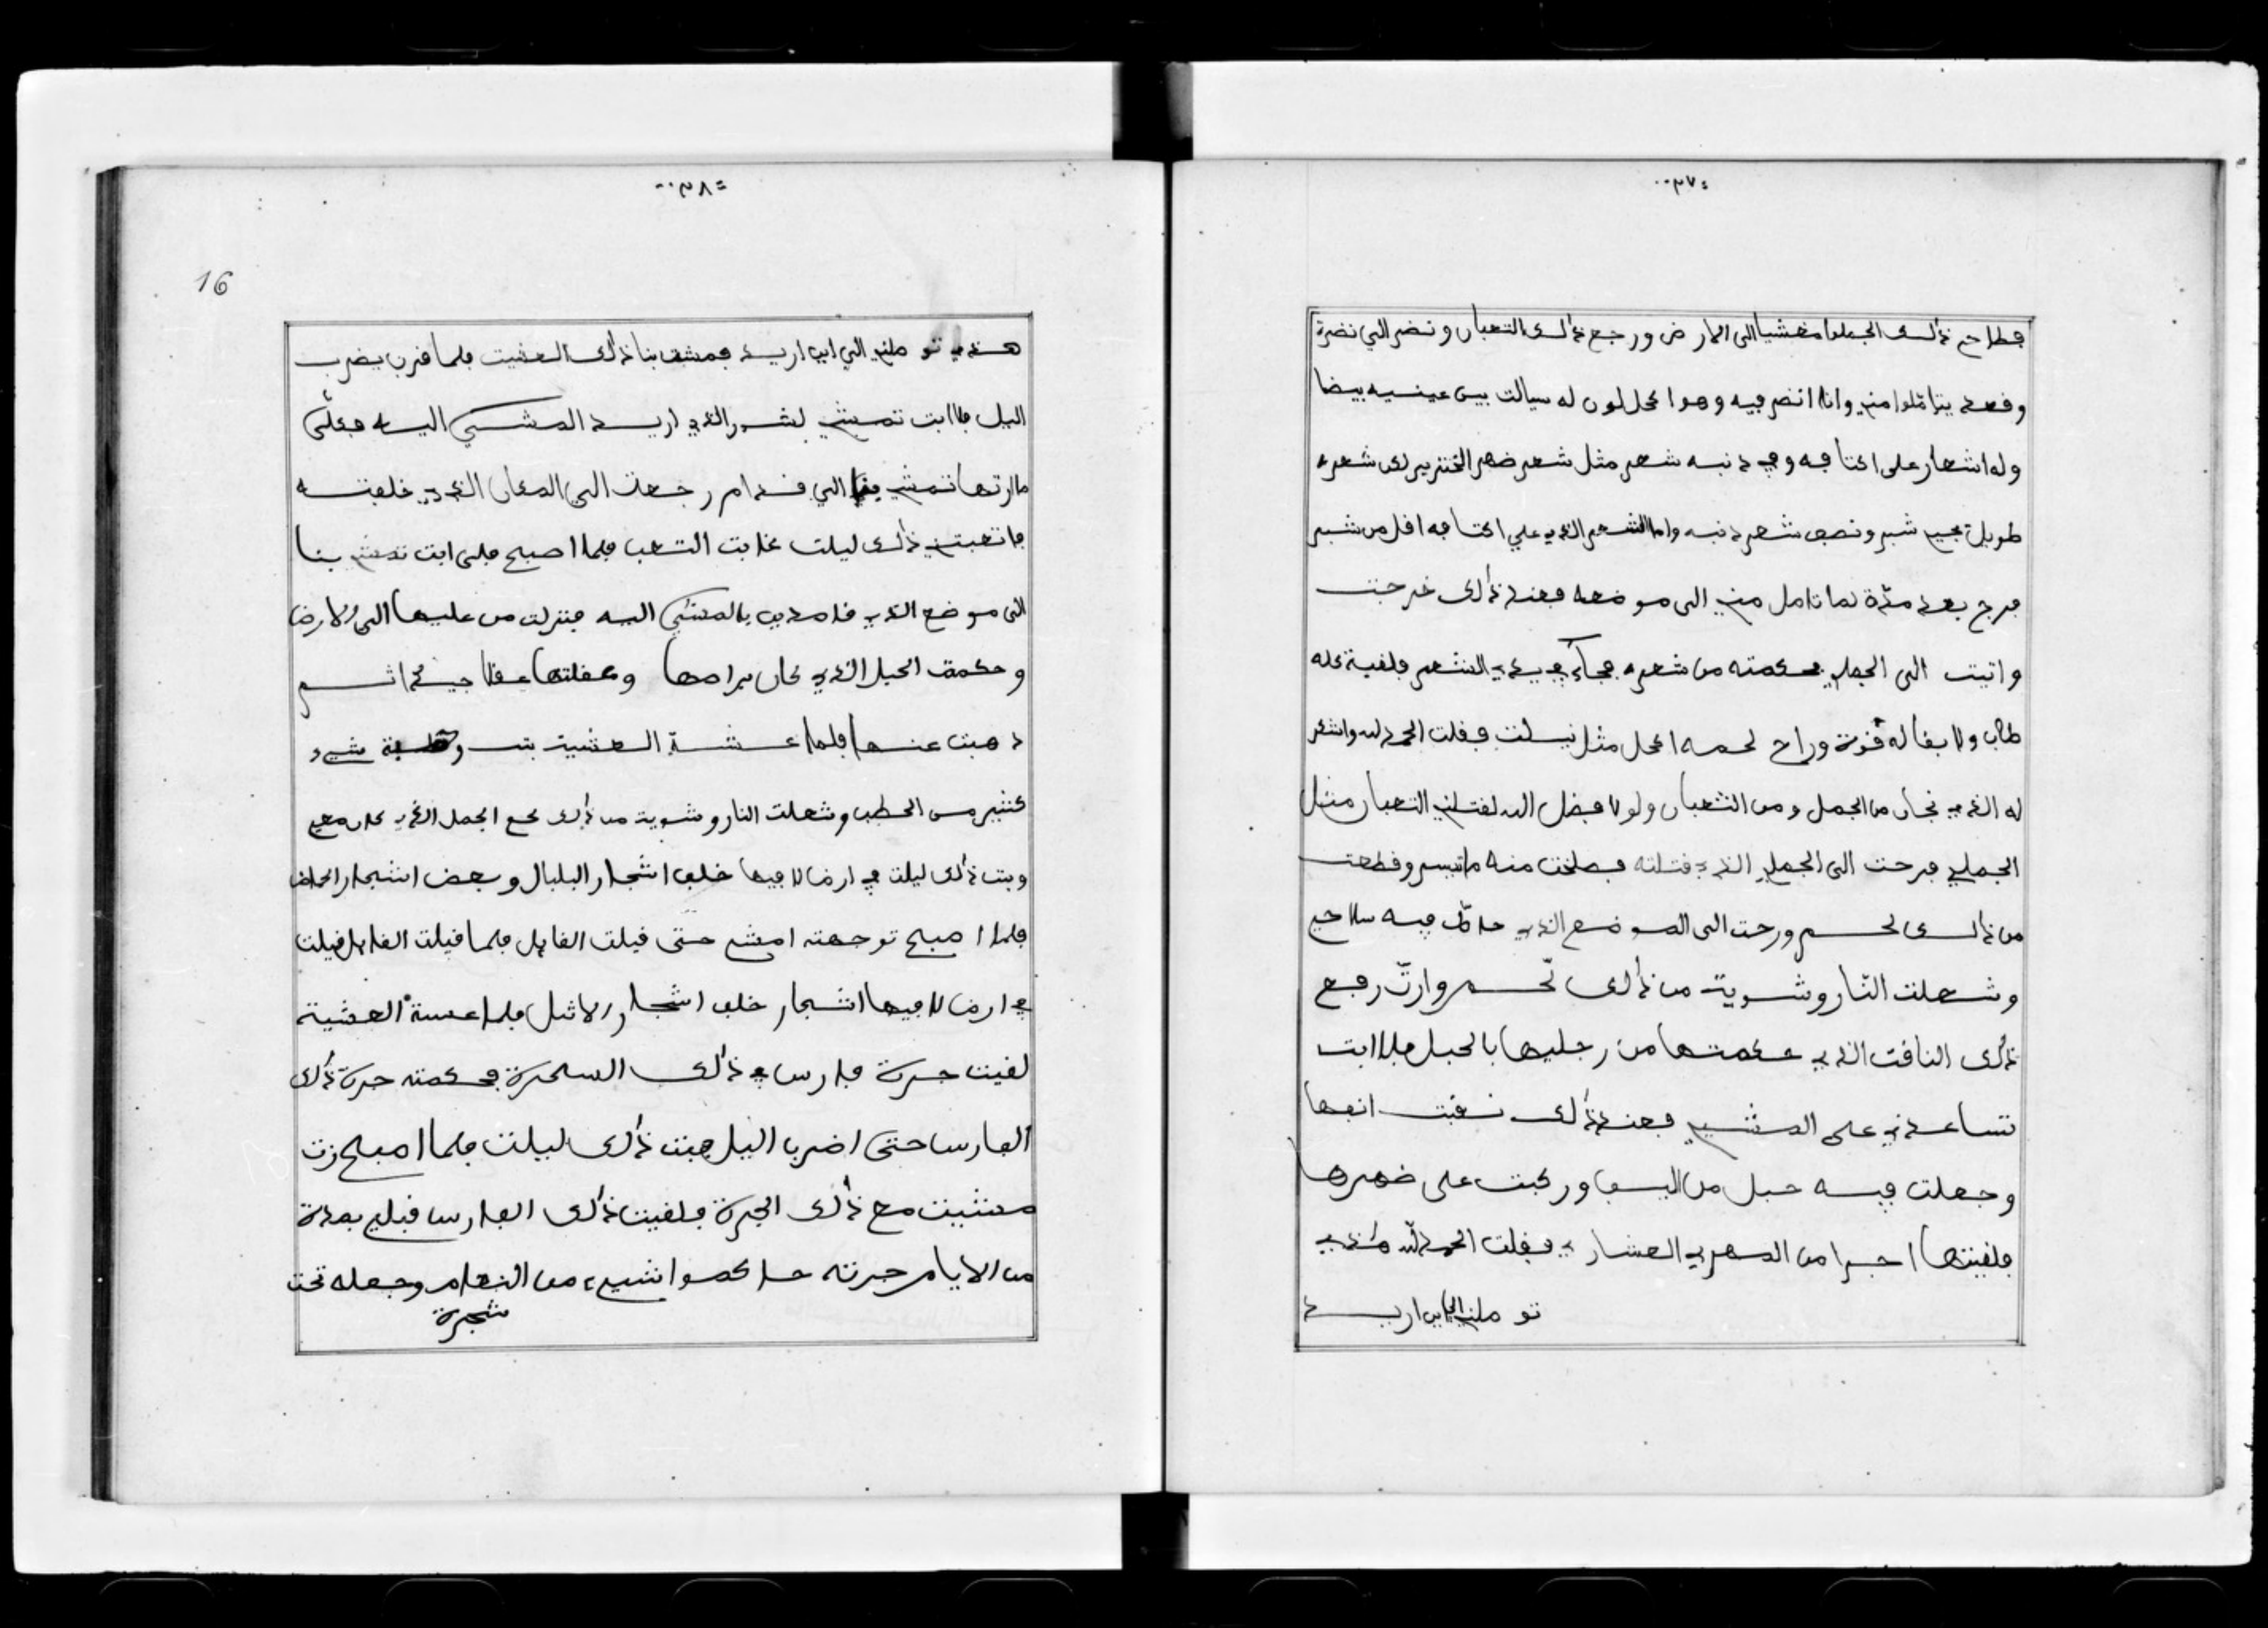 ٣٧
فطاح ذالك الجملوا مغشيا الى الارض ورجع ذالك التعبان ونضر الي نضرة
وقعد يتاملوا مني وانا انضر فيه وهوا اكحل لون له سيالت بين عينيه بيضا
وله اشعار على اكتافه وفي ذنبه شعر مثل شعر ضهر الخنزير لكن شعره
طويل يجي شبر ونصف شعر ذنبه واما الشعر الذي علي اكتافه اقل من شبر
فرجع بعد مدة لما تامل مني الى موضعه فعند ذالك خرجت
واتيت الى الجمل فحكمته من شعره فجاء في يدي الشعر فلقيته كله
طاب ولا بقا له قوة وراح لحمه اكحل مثل نيلت فقلت الحمد لله واشكر
له الذي نجان من الجمل ومن الثعبان ولولا فضل الله لقتلني التعبان مثل
الجملي فرحت الى الجملي الذي قتلته فصلخت منه ماتيسر وقطعت
من ذالك لحم ورحت الى الموضع الذي حاطّ فيه سلاحي
وشعلت النّار وشويت من ذالك لّحم وارتّ رفع
ذالك الناقت الذي حكمتها من رجليها بالحبل فلا ابت
تساعدني على المشي فعند ذالك نقبت انفها
وجعلت فيه حبل من اليف وركبت على ضهرها
فلقيتها اجرا من المهري العشاري فقلت الحمد لله هذي
تو ملني الي اين اريد
٣٨
16
هذي تو ملني الي اين اريد فمشت بنا ذالك العشيت فلما قرب يضرب
اليل فا ابت تمشي لشور الذي اريد المشي اليه فعلى
ما ارتها تمشي بنا الي قدام رجعت الي المكان الذي خلفته
فاتعبتني ذالك ليلت غايت التعب فلما اصبح فلى ابت تمشي بنا
الى موضع الذي قاصدين بالمشي اليه فنزلت من عليها الى الارض
وحكمت الحبل الذي كان برامها وعقلتها عقلا جيد اثم
ذهبت عنها فلما عشة العشية بت شيء
كثير من الحطب وشعلت النار وشويت من ذالك لحم الجمل الذي كان معي
وبت ذالك ليلت في ارض لا فيها خلف اشجار البلبال وبعض اشجار الحلف
فلما اصبح توجهته امشي حتى قيلت القايل فلما قيلت القايل قيلت
في ارض لا فيها اشجار خلف اشجار الاثل فلما عسة العشية
لفيت جرة فارس في ذالك السحرة فحكمته جرة ذالك
الفارس حتى اضرب اليل فبت ذالك ليلت فلما اصبح زت
مشيت مع ذالك الجرة فلفيت ذالك الفارس قبلي بمدة
من الايام جرته حاكموا شيء من النعام وجعله تحت
شجرة